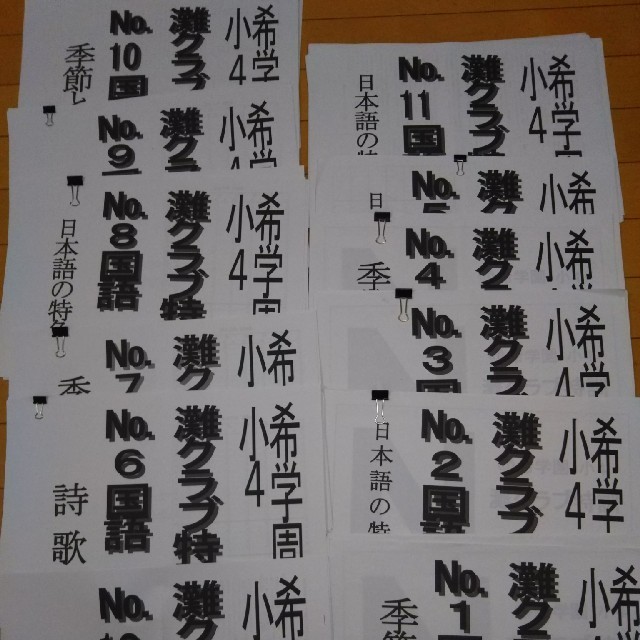 希学
小4
灘クラブ
No.10国
季節と
希学
小4
灘クラ
No.9
希学周
小4
灘クラブ特
No.8国語
日本語の特
希
小
灘ク
No.7
季
希学周
小4
灘クラブ特
No.6国語
詩歌
希
小4
灘ク
No.
希学
小4
灘クラブ
No.11国
日本語の特
希
小
灘
No.
日
希学
小4
灘クラ
No.4
季
希学
小4
灘クラブ
No.3国
希学
小4
灘クラブ
No.2国語
日本語の特
希学
小4
灘クラ
No.1
季節